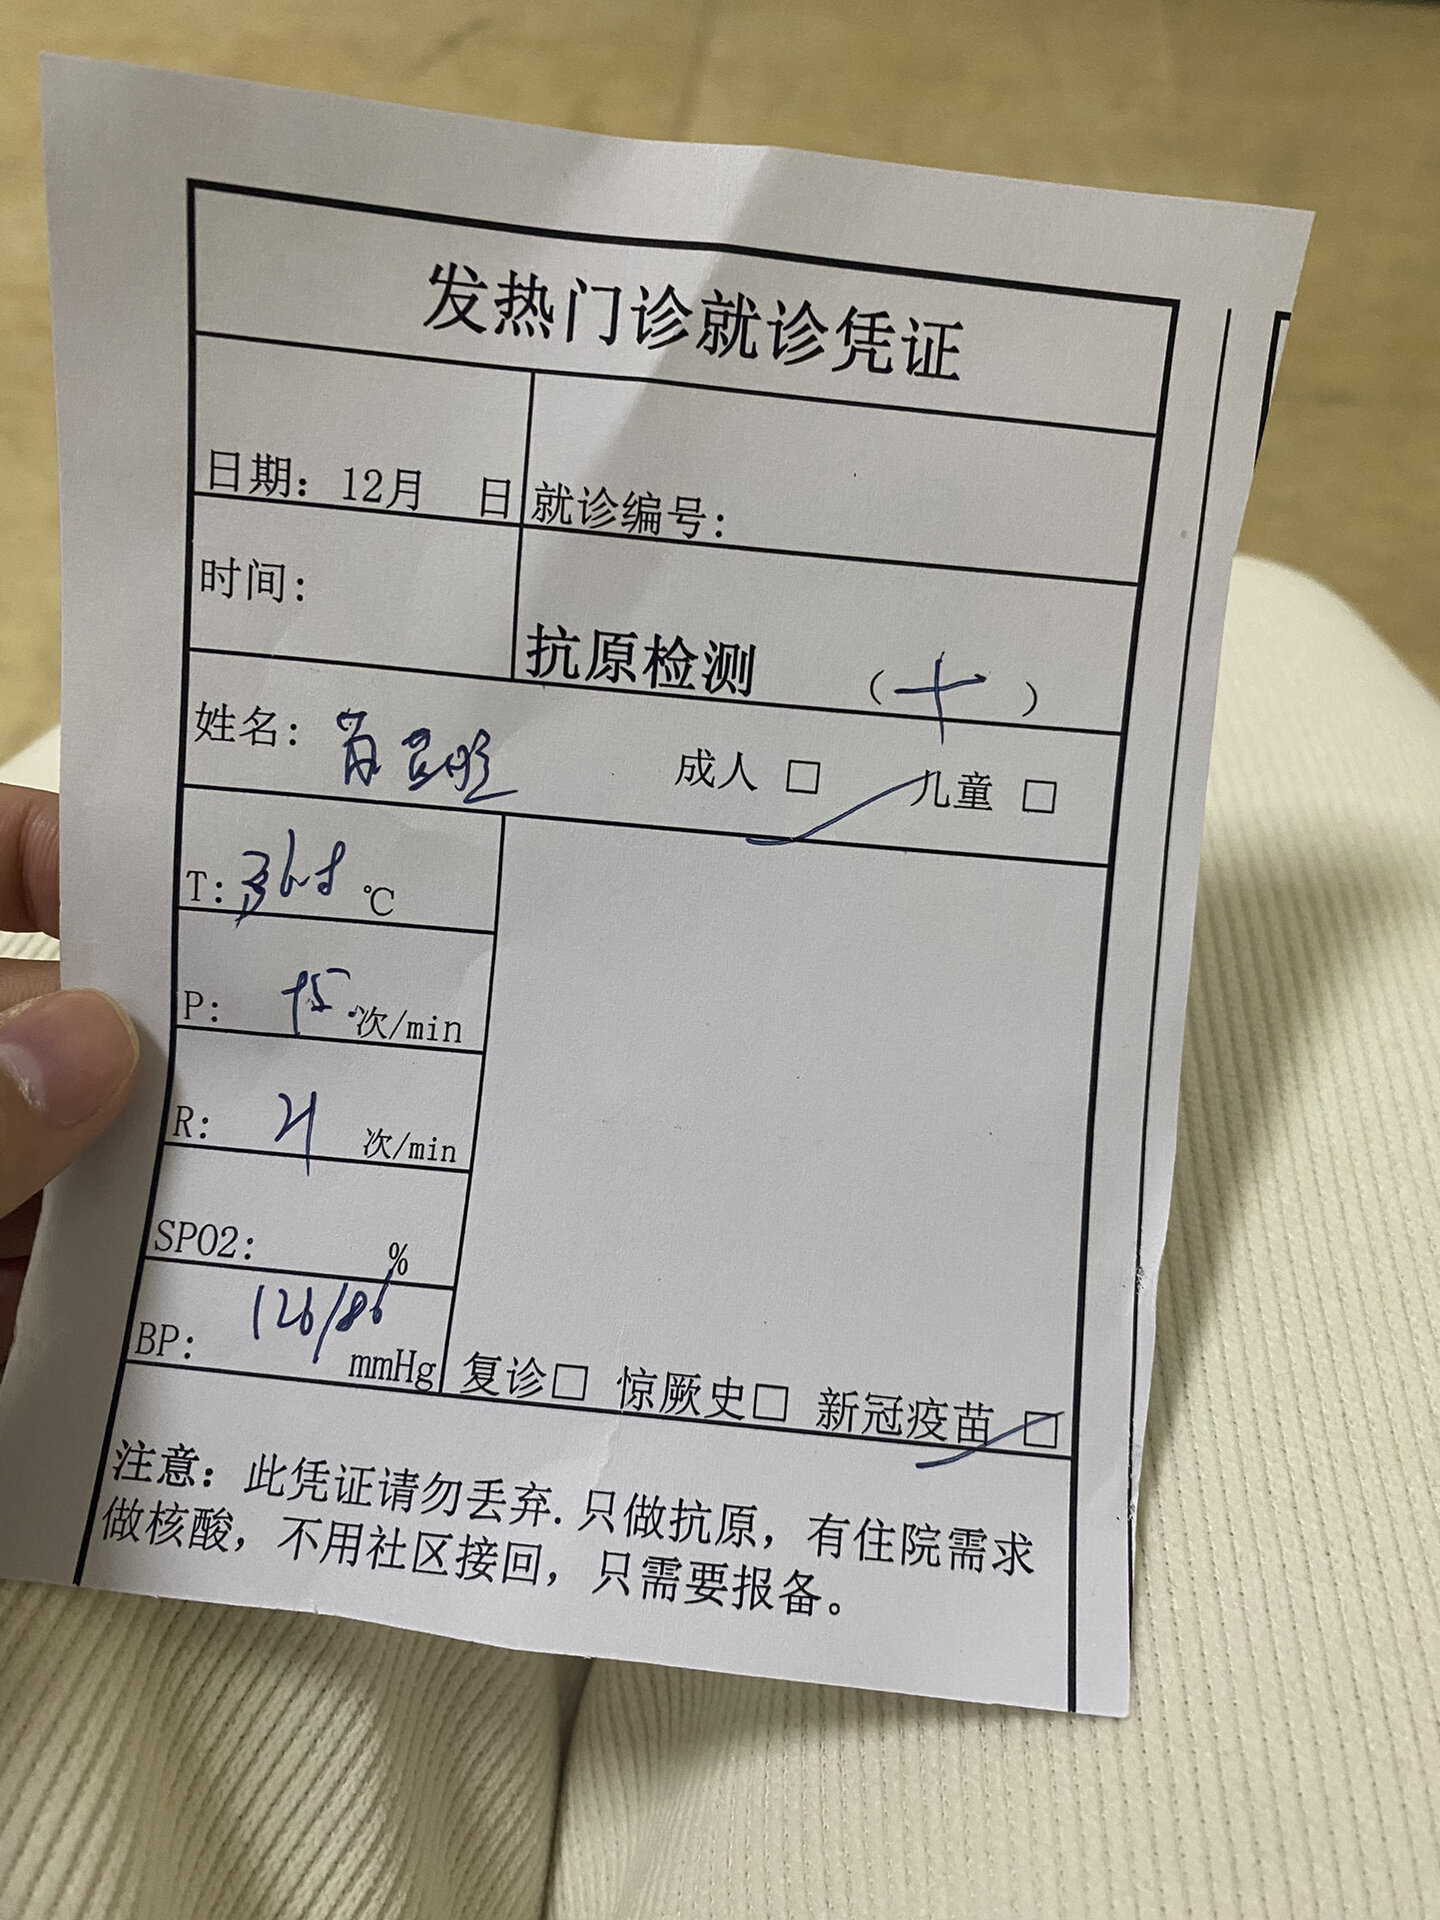 发热门诊就诊凭证
日期：12月 日 就诊编号：
时间：
抗原检测 （+）
姓名： 成人 □ 儿童 □
T: ℃
P: 95 次/min
R: 21 次/min
SPO2: %
BP: 126/86 mmHg
复诊□ 惊厥史□ 新冠疫苗 □
注意：此凭证请勿丢弃.只做抗原，有住院需求
做核酸，不用社区接回，只需要报备。